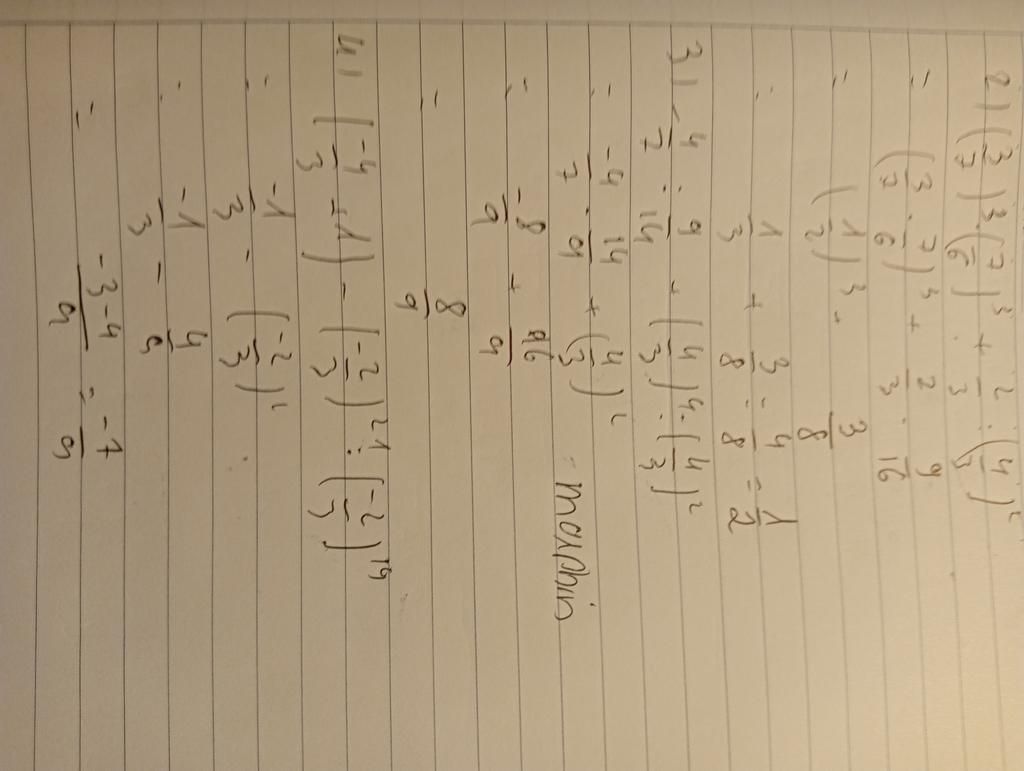 2) (3/7)³ · (7/6)³ + 2/3 : (4/3)²
= (3/7 · 7/6)³ + 2/3 · 9/16
= (1/2)³ + 3/8
= 1/3 + 3/8 = 4/8 = 1/2
3) -4/7 : 9/14 + (4/3)⁴ · (4/3)²
= -4/7 · 14/9 + (4/3)² = morphin
= -8/9 + 16/9
= 8/9
4) (-4/3 + 1) - (-2/3)²¹ : (-2/3)¹⁹
= -1/3 - (-2/3)²
= -1/3 - 4/9
= -3-4/9 = -7/9